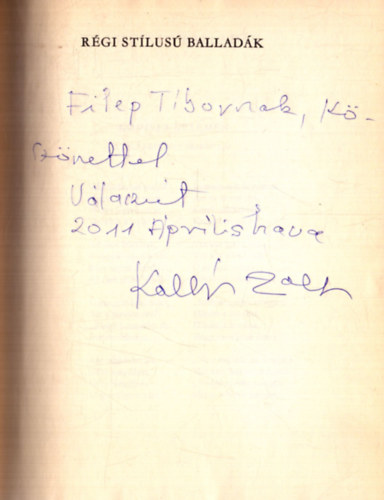 RÉGI STÍLUSÚ BALLADÁK
Filep Tibornak, Kö-
szönettel
Válaszút
2011 Április hava
Kallós Zoltán